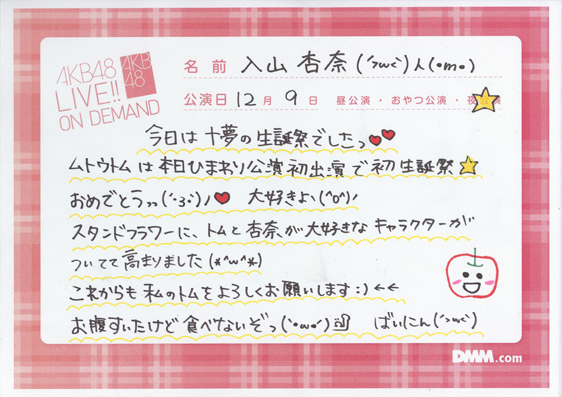 AKB48
LIVE!!
ON DEMAND
AKB
48
名前 入山 杏奈(´ω`)人(•m•)
公演日 12月 9日 昼公演・おやつ公演・夜公演
今日は十夢の生誕祭でしたっ
ムトウトムは本日ひまわり公演初出演で初生誕祭
おめでとうっっ(´・3・`)ノ 大好きよ、(^o^)ノ
スタンドフラワーに、トムと杏奈が大好きなキャラクターが
ついてて高まりました(*^w^*)
これからも私のトムをよろしくお願いします:)←←
お腹すいたけど食べないぞっ(`•ω•´) ばいにん(´ω`)
DMM.com